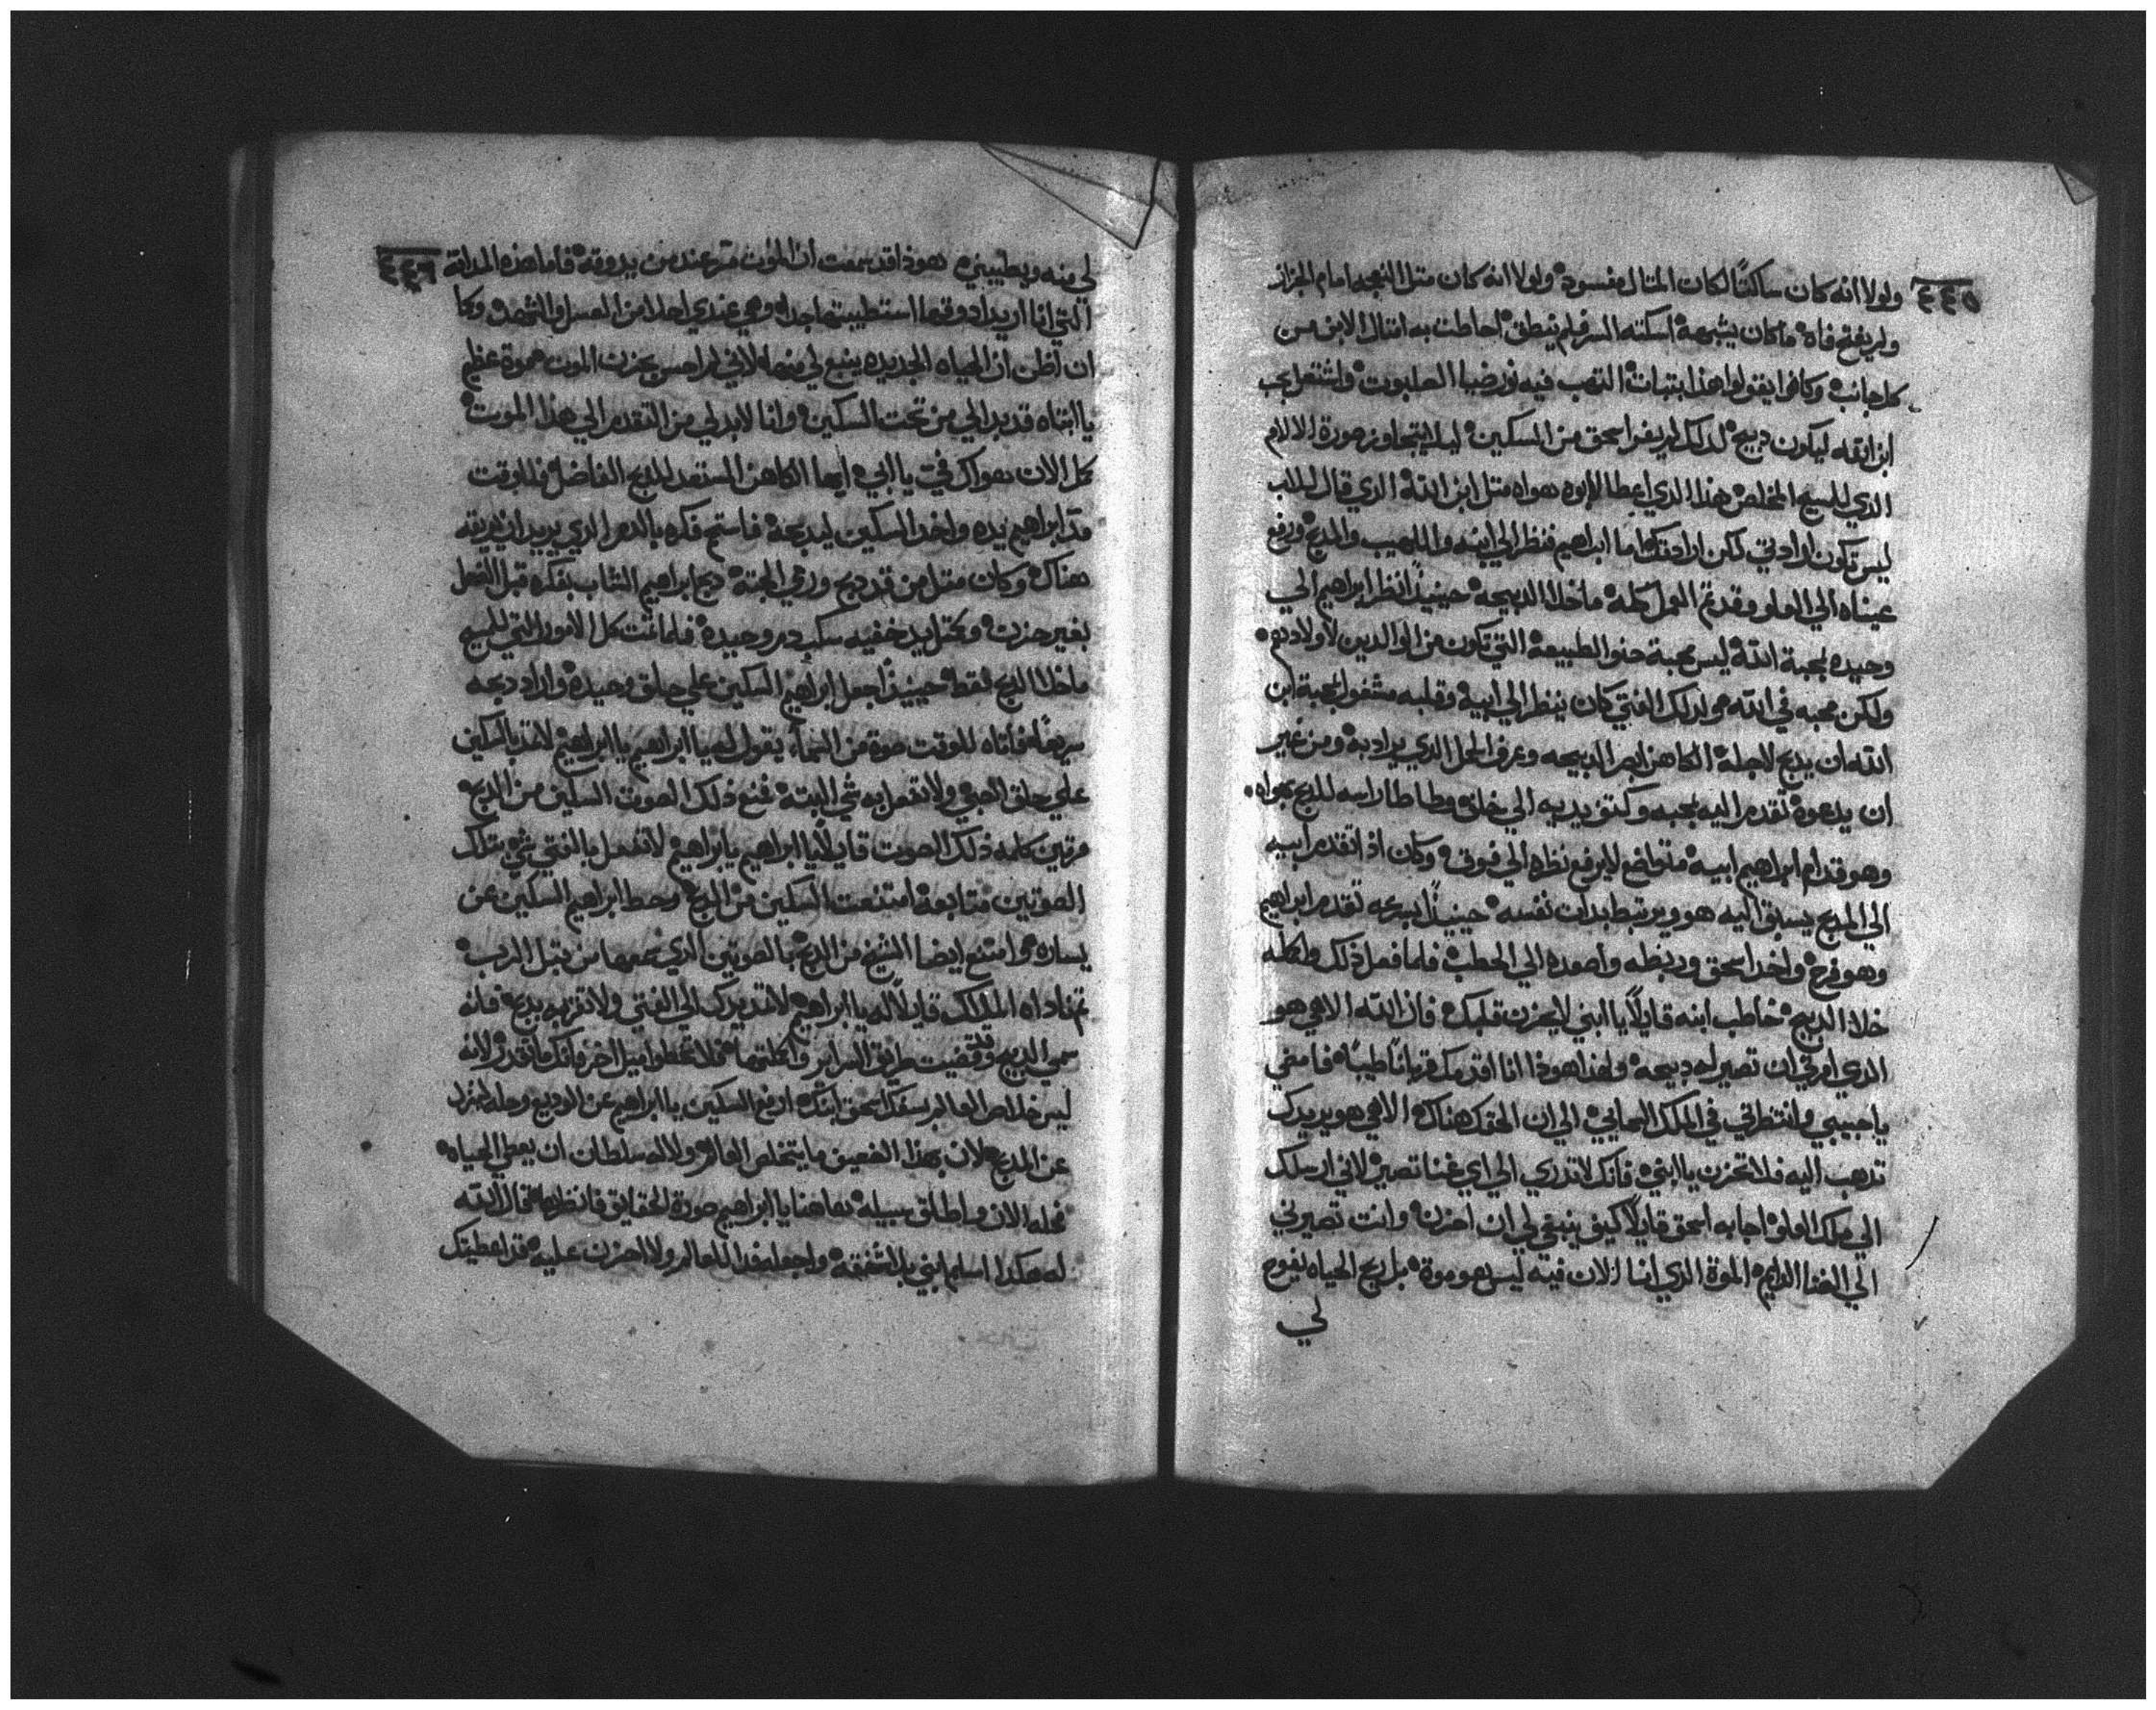 ٤٤٥
ولولا انه كان ساكتاً لكان المتال مفسود ولولا انه كان متل النعجه امام الجزاز
ولم يفتح فاه ما كان يشبهه اسكته السر فلم ينطق احاطت به امتال الابن من
كل جانب وكانوا يقولوا هذا بتبات التهب فيه نور ضيا الصلبوت واشتعل بحب
ابن الله ليكون دبيح لدلك لم يفر اسحق من السكين ليلا يتجاوز صورة الالام
الدي للمسيح المخلص هذا الدي اعطا لابوه هواه متل ابن الله الدي قال للاب
ليس تكون ارادتي لكن ارادتك اما ابراهيم فنظر الي ابنه واللهيب والمدبح ورفع
عيناه الي العلو وقد تم العمل كله ماخلا الدبيحه حينيذاً انظر ابراهيم الي
وحيده بمحبة الله ليس محبة حنو الطبيعه التي تكون من الوالدين لاولادهم
ولكن محبه في الله هو لدلك الفتي كان ينظر الي ابيه وقلبه مشغول بمحبة ابن
الله ان يدبح لاجله الكاهن ابصر الدبيحه وعرف الحمل الدي يراد به ومن غير
ان يدعوه تقدم اليه بمحبه وكتف يديه الي خلاه وطاطا راسه للدبح بهواه
وهو قدام ابراهيم ابيه متواضع لا يرفع نظره الي فوق وكان اذا تقدم ابيه
الي المدبح يسبق اليه هو ويرتبط بدات نفسه حينيذاً اسرعه تقدم ابراهيم
وهو فرح واخد اسحق وربطه واصعده الي الحطب فلما فعل ذلك واكمله
خلا الدبيح خاطب ابنه قايلاً يا ابني لا يحزن قلبك فان الله الاهي هو
الدي امرني ان تصير له دبيحه ولهذا هوذا انا اقدمك قرباناً طيباً فامضي
يا حبيبي وانتظرني في الملك السمايي الي ان الحقك هناك الاهي هو يريدك
تدهب اليه فلا تحزن يا ابني فانك لا تدري الي اي غنا تصير لاني ارسلك
الي ملك العلو اجابه اسحق قايلاً كيف ينبغي لي ان احزن وانت تصيرني
الي الغنا الدايم الموة الدي انا الان فيه ليس هو موة بل ريح الحياه يفوح
لي
٤٤٦
لي منه ويطيبني هوذا قد سمعت ان الموت مر عند من يدوقه فاما هذه المداقه
التي انا اريد ادوقها استطيبتها جداً وهي عندي احلا من العسل والشهد وكا
ان اظن ان الحياه الجديده ينبع لي منها لاني لم احس بحزن الموت هموة عظيم
يا ابتاه قد بدا لي من تحت السكين وانا لا بد لي من التقدم الي هذا الموت
كمل الان هواك في يا ابي ايها الكاهن المستعد للدبح الفاضل فللوقت
مد ابراهيم يده واخد السكين ليدبحه فاستم فكره بالدم الدي يريد ان يهرقه
هناك وكان متل من قد دبح ورمي الجتة دبح ابراهيم الشاب بفكره قبل الفعل
بغير حزن وبمتل يد خفيه سكب دم وحيده فلما تمت كل الامور التي للمسيح
ماخلا الدبح فقط حينيذاً جعل ابراهيم السكين علي حلق وحيده واراد دبحه
سريعاً فاتاه للوقت صوة من السماء يقول له يا ابراهيم يا ابراهيم لا تمد بالسكين
علي حلق الصبي ولا تفعل به شي البته فمنع ذلك الصوت السكين من الدبح
مرتين كلمه ذلك الصوت قايلاً يا ابراهيم يا ابراهيم لا تفعل بالفتي شي بتلك
الصوتين متابعة امتنعت السكين من الدبح وحط ابراهيم السكين عن
يساره وامتنع ايضا الشيخ من الدبح بالصوتين الدي سمعها من قبل الرب
تم ناداه الملاك قايلاً له يا ابراهيم لا تمد يدك الي الفتي ولا تقربه بدبح فانه
سمي الدبيح وقد قضيت طريق السراير واكملتها فلا تخطوا ميل اخر فانك ما تقدر لانه
ليس خلاص العالم بسفك اسحق ابنك ارفع السكين يا ابراهيم عن الوديع وحله لينزل
عن المدبح لان بهذا الضعيف ما يتخلص العالم ولا له سلطان ان يعطي الحياه
فحله الان واطلق سبيله هاهنا يا ابراهيم صورة الحقايق فانظرها قال الله
له هكدا اسلم ابني بلا شفقه واجعله فدا للعالم ولا احزن عليه قد اعطيتك